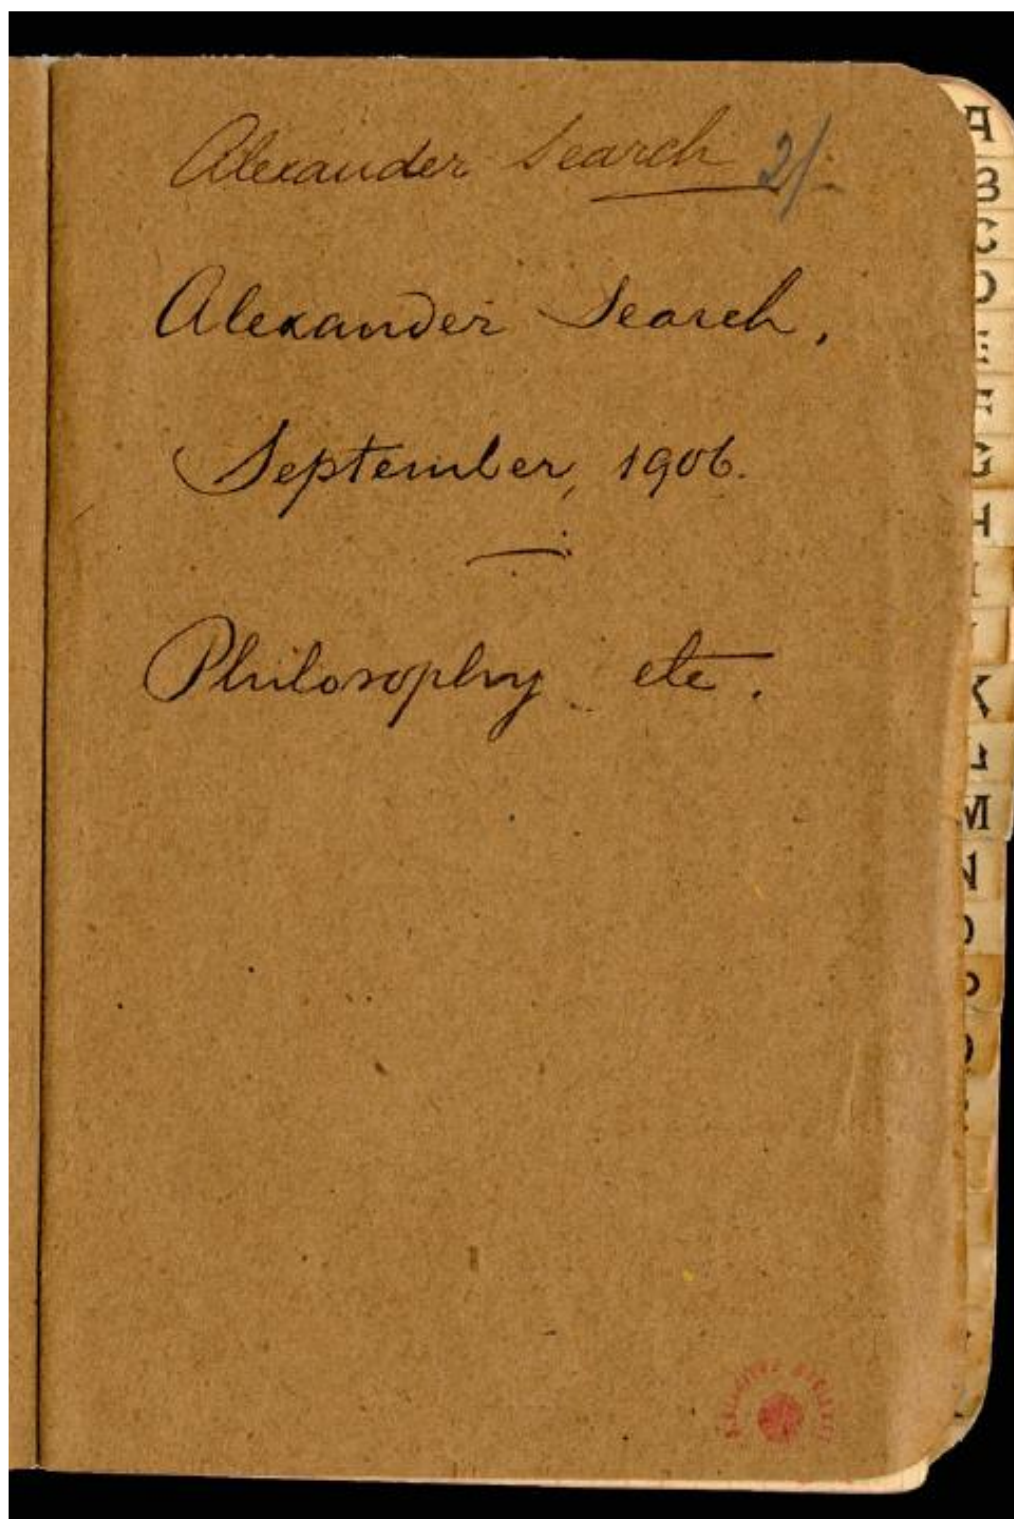 Alexander Search 2/
Alexander Search,
September, 1906.
Philosophy etc.
A
B
C
D
E
F
G
H
I
K
L
M
N
O
P
Q